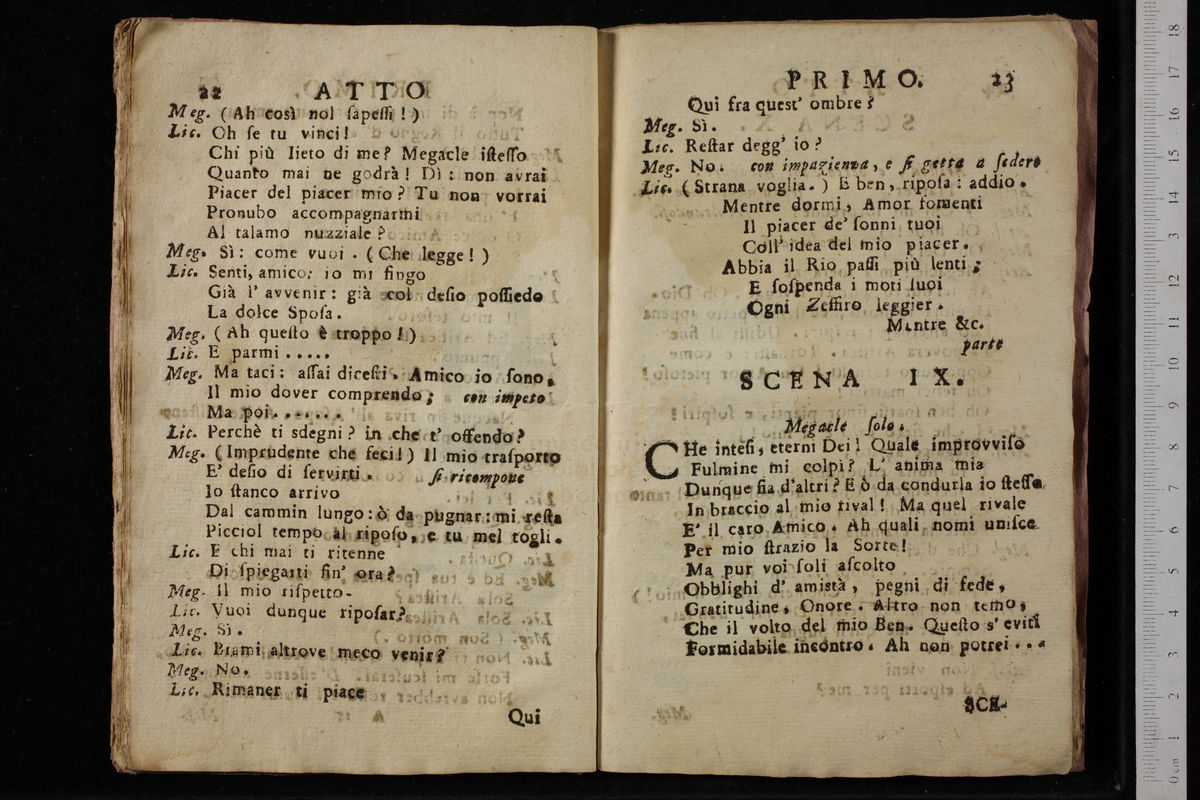 22 ATTO
Meg. (Ah così nol ſapeſſi!)
Lic. Oh ſe tu vinci!
Chi più lieto di me? Megacle iſteſſo
Quanto mai ne godrà! Dì: non avrai
Piacer del piacer mio? Tu non vorrai
Pronubo accompagnarmi
Al talamo nuzziale?
Meg. Sì: come vuoi. (Che legge!)
Lic. Senti, amico: io mi fingo
Già l' avvenir: già col deſio poſſiedo
La dolce Spoſa.
Meg. (Ah queſto è troppo!)
Lic. E parmi.....
Meg. Ma taci: aſſai diceſti. Amico io ſono,
Il mio dover comprendo; con impeto
Ma poi.......
Lic. Perchè ti sdegni? in che t' offendo?
Meg. (Imprudente che feci!) Il mio traſporto
E' deſio di ſervirti. ſi ricompone
Io ſtanco arrivo
Dal cammin lungo: ò da pugnar: mi reſta
Picciol tempo al ripoſo, e tu mel togli.
Lic. E chi mai ti ritenne
Di ſpiegarti fin' ora?
Meg. Il mio riſpetto.
Lic. Vuoi dunque ripoſar?
Meg. Sì.
Lic. Brami altrove meco venir?
Meg. No.
Lic. Rimaner ti piace
Qui
PRIMO. 23
Qui fra queſt' ombre?
Meg. Sì.
Lic. Reſtar degg' io?
Meg. No. con impazienza, e ſi getta a ſedere
Lic. (Strana voglia.) E ben, ripoſa: addio.
Mentre dormi, Amor fomenti
Il piacer de' ſonni tuoi
Coll' idea del mio piacer.
Abbia il Rio paſſi più lenti;
E ſoſpenda i moti ſuoi
Ogni Zeffiro leggier.
Mentre &c.
parte
SCENA IX.
Megacle ſolo.
CHe inteſi, eterni Dei! Quale improvviſo
Fulmine mi colpì? L' anima mia
Dunque ſia d'altri? E ò da condurla io ſteſſo
In braccio al mio rival! Ma quel rivale
E' il caro Amico. Ah quali nomi uniſce
Per mio ſtrazio la Sorte!
Ma pur voi ſoli aſcolto
Obblighi d' amistà, pegni di fede,
Gratitudine, Onore. Altro non temo,
Che il volto del mio Ben. Queſto s' eviti
Formidabile incontro. Ah non potrei...
SCE-